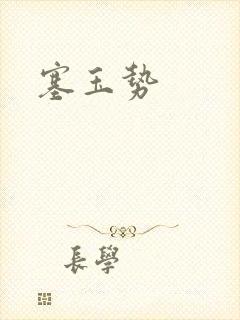 塞玉勢
長學